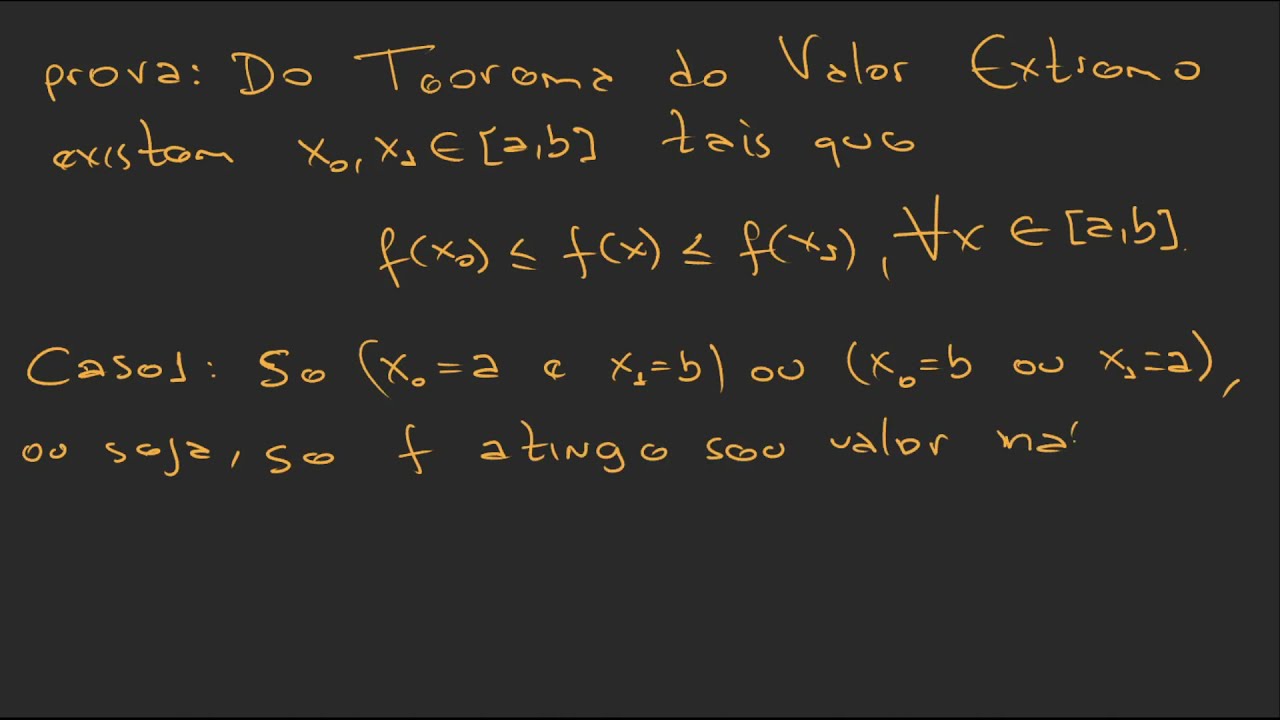 prova: Do Teorema do Valor Extremo
existem x₀, x₁ ∈ [a,b] tais que
f(x₀) ≤ f(x) ≤ f(x₁), ∀x ∈ [a,b].
Caso1: Se (x₀=a e x₁=b) ou (x₀=b ou x₁=a),
ou seja, se f atinge seu valor má